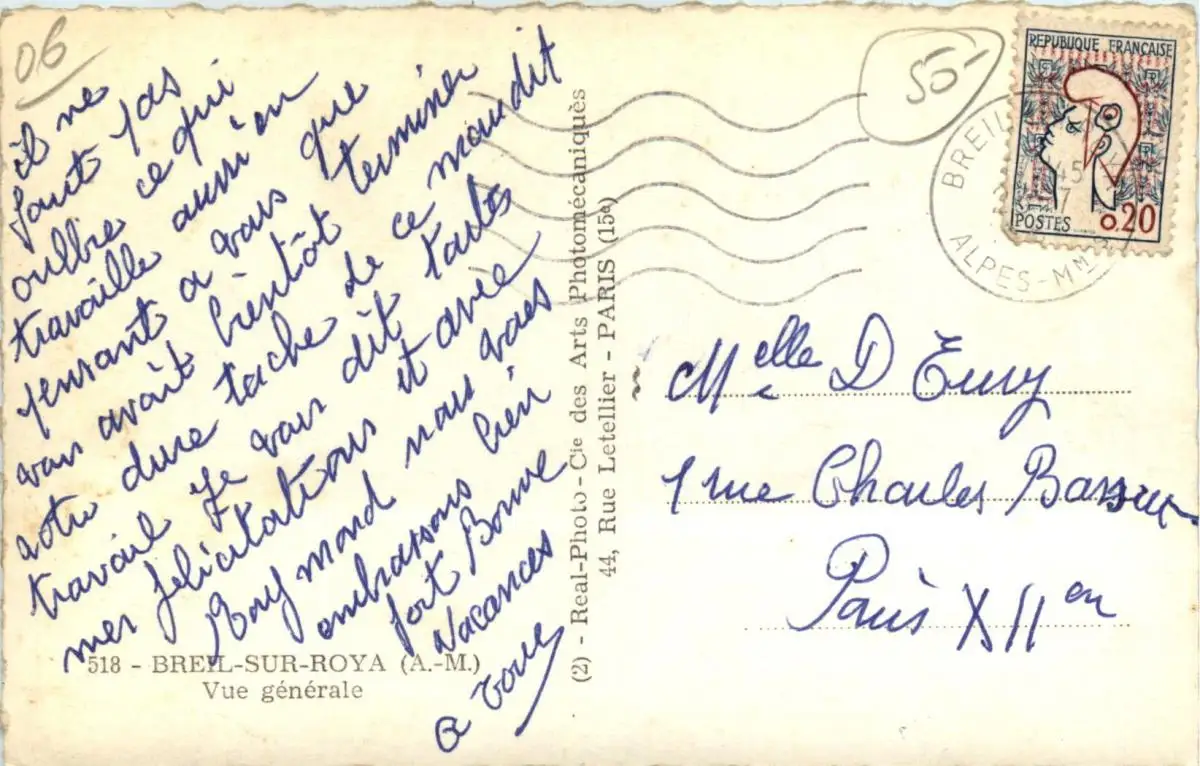 06
il ne
faut pas
oulbie ce qui
travaille aussi en
pensant a vous que
vous avait bientôt terminer
votre dure tache de ce maudit
travail Je vous dit toutes
mes félicitations et avec
Raymond nous vous
embrassons bien
fort Bonne
Vacances
a tous
518 - BREIL-SUR-ROYA (A.-M.)
Vue générale
(2) - Real-Photo - Cie des Arts Photomécaniques
44, Rue Letellier - PARIS (15e)
55-
REPUBLIQUE FRANÇAISE
POSTES 0.20
BREIL
ALPES-MMES
Melle D
1 rue Charles
Paris XII en